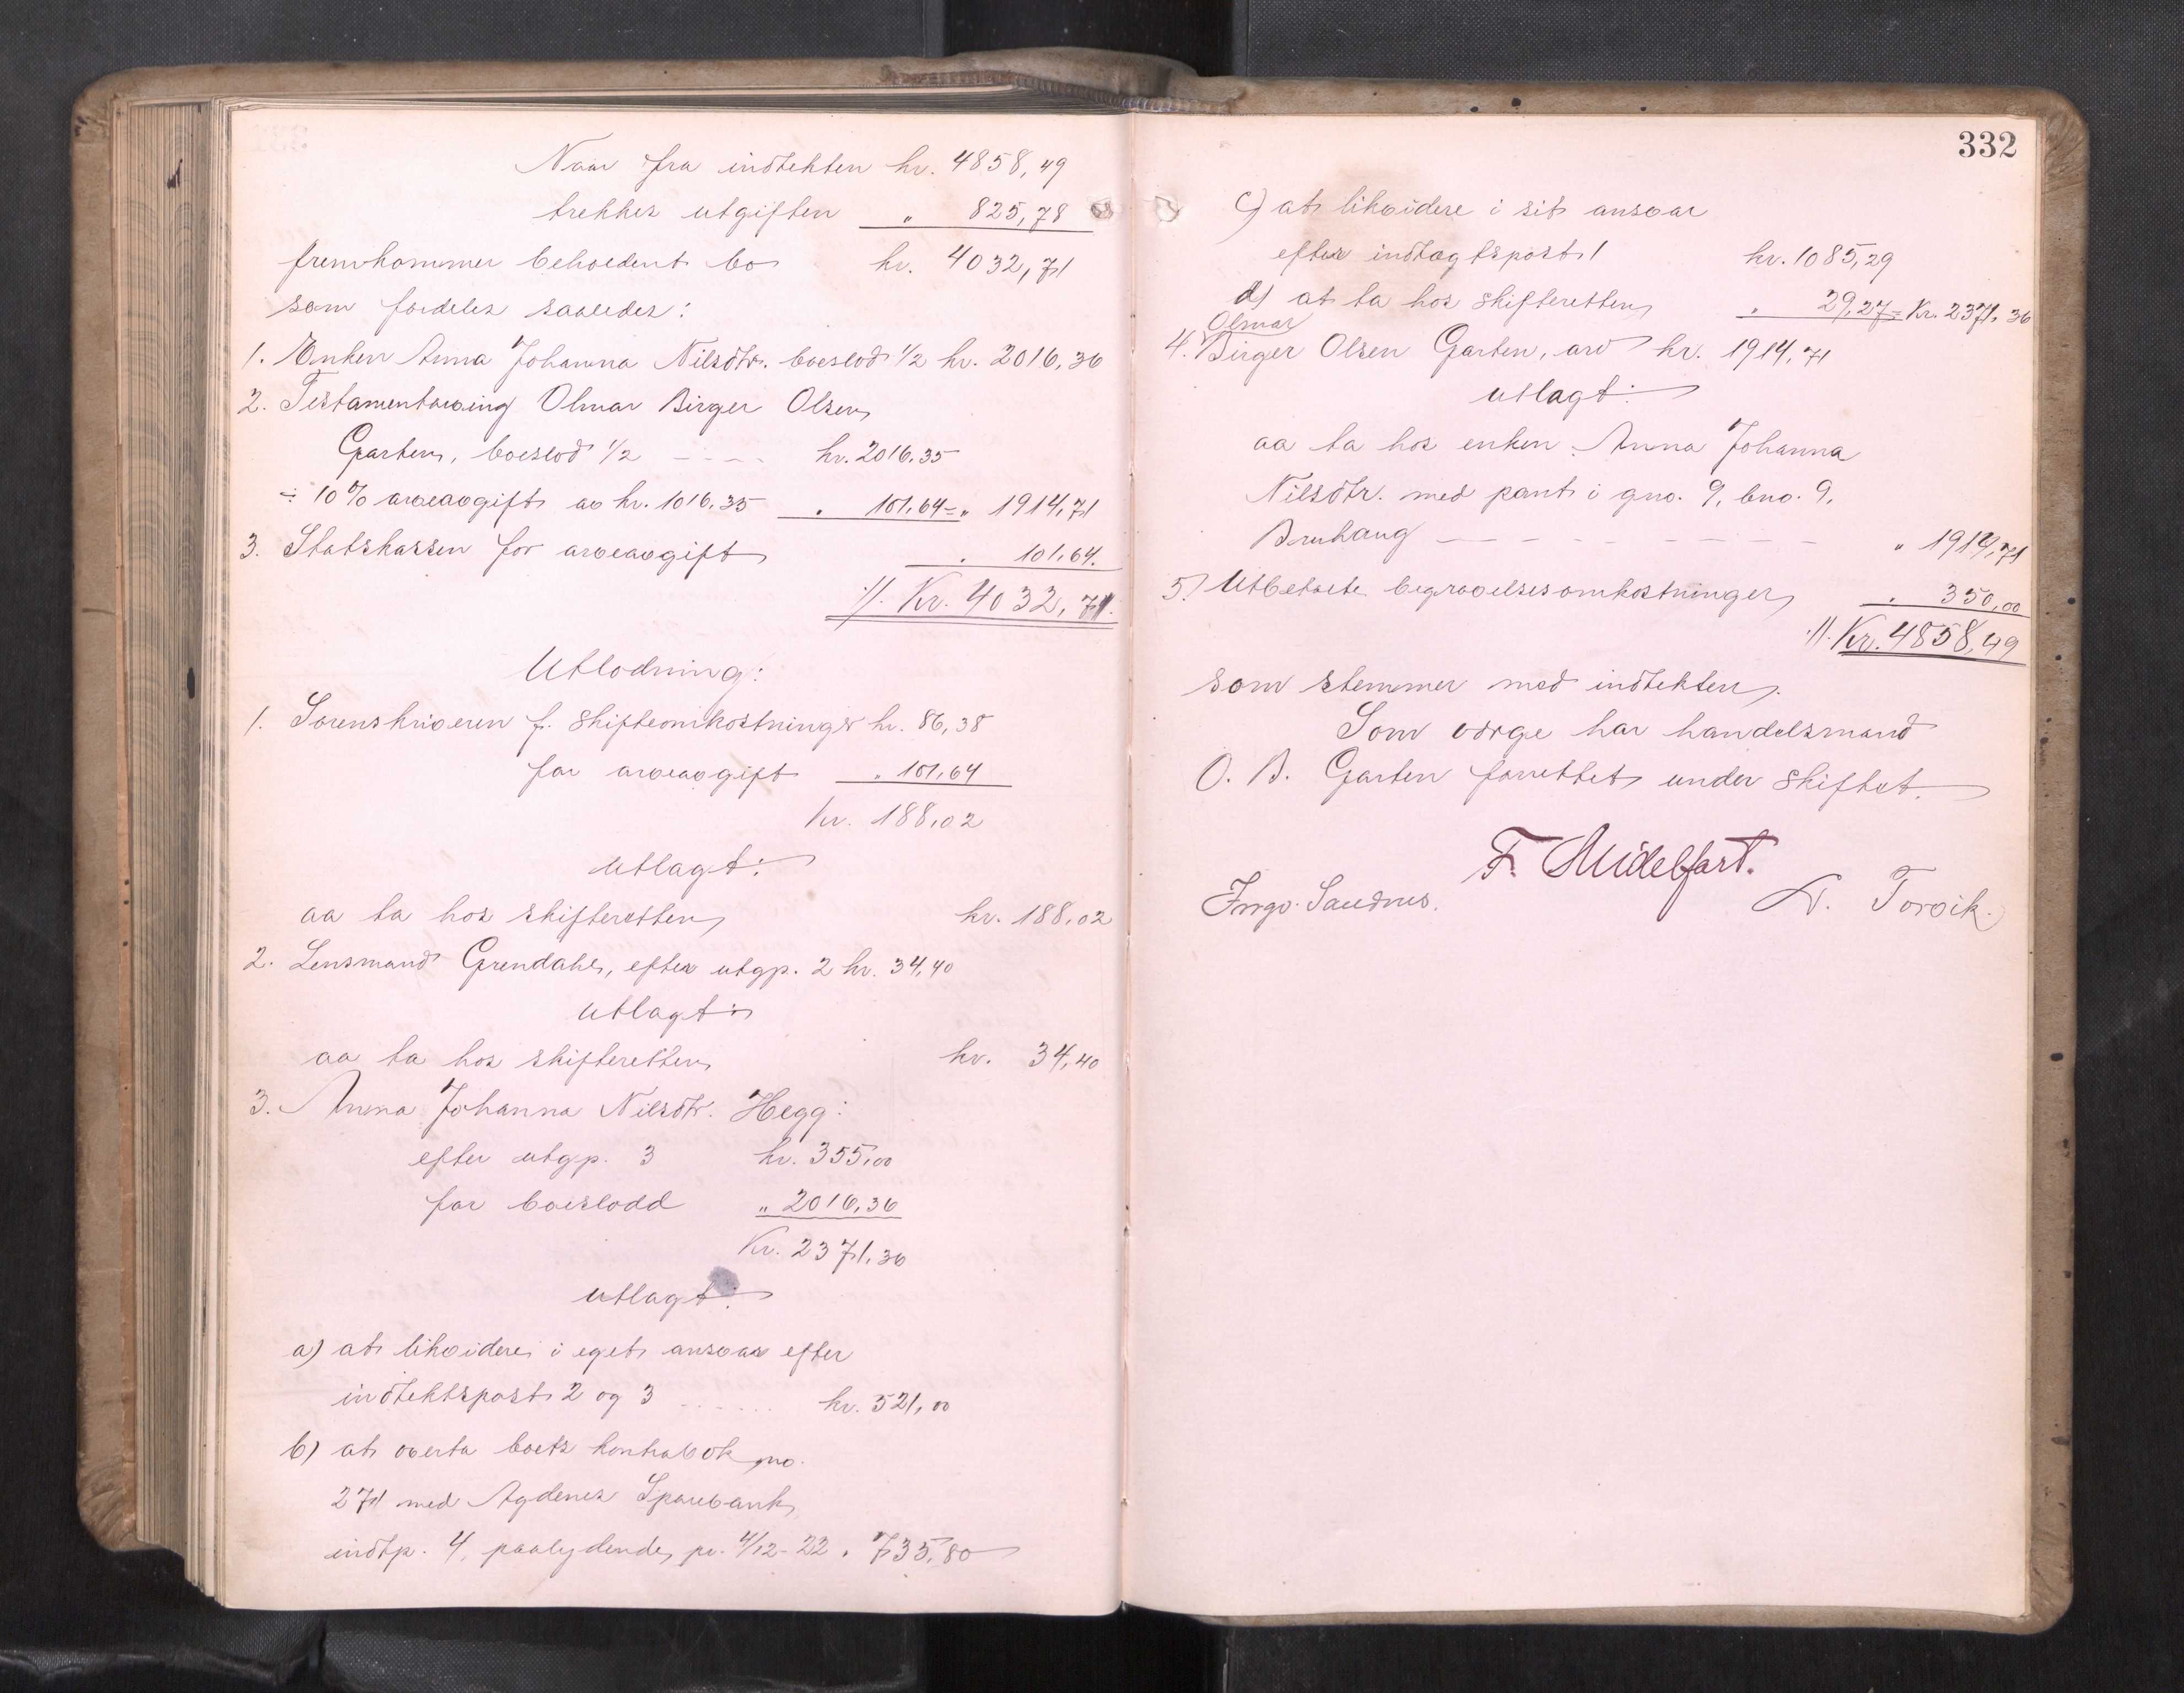 Naar fra indtekten kr. 4858,49
trekkes utgiften " 825,78
fremkommer beholdent bo kr. 4032,71
som fordeles saaledes:
1. Enken Anna Johanna Nilsdtr. boeslod 1/2 kr. 2016,36
2. Testamentarving Olmar Birger Olsen
Garten, boeslod 1/2 - - - - kr. 2016.35
÷ 10% arveavgift av kr. 1016.35 " 101,64 = " 1914,71
3. Statskassen for arveavgift " 101,64.
://: Kr. 4032,71.
Utlodning:
1. Sorenskriveren f. skifteomkostninger kr. 86,38
for arveavgift " 101,64
kr. 188,02
utlagt:
aa ta hos skifteretten kr. 188,02
2. Lensmand Grendahl, efter utgp. 2 kr. 34,40
utlagt:
aa ta hos skifteretten kr. 34,40
3. Anna Johanna Nilsdtr. Hegg:
efter utgp. 3 kr. 355,00
for boeslodd " 2016,36
Kr. 2371,36
utlagt:
a) at likvidere i eget ansvar efter
indtektspost 2 og 3 - - - - - - kr. 521,00
b) at overta boets kontrabok no.
271 med Agdenes Sparebank,
indtp. 4, paalydende pr. 4/12-22 " 735,80
332
c) at likvidere i sit ansvar
efter indtægtspost 1 kr. 1085,29
d) at ta hos skifteretten " 29,27 = Kr. 2371,36
Olmar
4. Birger Olsen Garten, arv kr. 1914,71
utlagt:
aa ta hos enken Anna Johanna
Nilsdtr. med pant i gno. 9, bno. 9,
Bruhaug - - - - - - - - - " 1914,71
5. Utbetalte begravelsesomkostninger " 350,00
://: Kr. 4858,49
som stemmer med indtekten.
Som værge har handelsmand
O. B. Garten forrettet under skiftet.
F. Midelfart.
Ingv. Sandnes. Torvik.